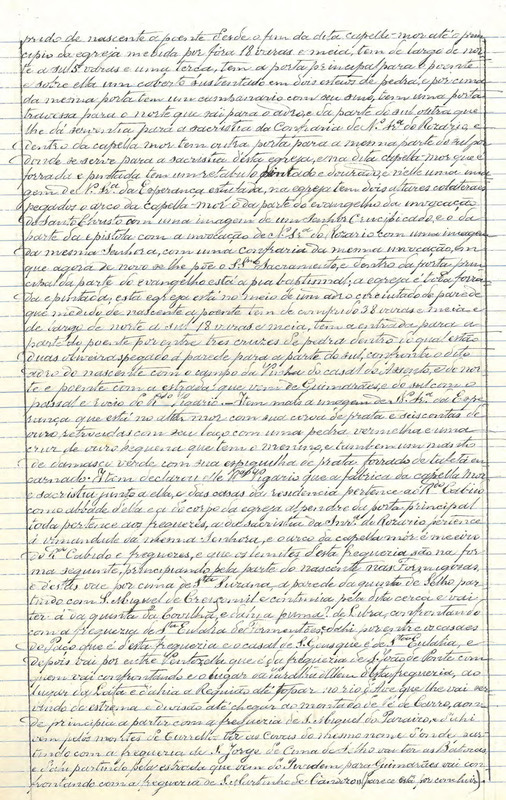 prido de nascente a poente desde o fim da dita capella-mor até o prin-
cipio da egreja medida por fóra 18 varas e meia, tem de largo de nor-
te a sul 5 varas e uma terça, tem a porta principal para o poente
e sobre ella um coberto sustentado em dois esteios de pedra, e por cima
da mesma porta tem um campanario com seu sino, tem uma porta
travessa para o norte que sai para o adro, e da parte do sul outra que
lhe dá serventia para a sacristia da Confraria de N. Sr.ª do Rozario, e
dentro da capella mor tem outra porta para a mesma parte do sul por
donde se serve para a sacristia d'esta egreja, e na dita capela-mor que é
forrada e pintada tem um retabulo pintado e dourado, e nelle uma ima-
gem de N. Sr.ª da Esperança estofada, na egreja tem dois altares colateraes
pegados ao arco da capella-mor o da parte do evangelho da invocação
do Santo Christo com uma imagem de um Senhor Crucificado, e o da
parte da epistola com a invocação de N. S.ª do Rozario com uma imagem
da mesma Senhora, com uma confraria da mesma invocação, em
que agora de novo se lhe põe o S.S.mo Sacramento, e dentro da porta prin-
cipal da parte do evangelho está a pia baptismal, a egreja é toda forra-
da e pintada, esta egreja está no meio de um adro circuitado de parede
que medido de nascente a poente tem de comprido 38 varas e meia e
de largo de norte a sul 18 varas e meia, tem a entrada para a
parte do poente por entre tres cruzes de pedra dentro do qual estão
duas oliveiras pegado á parede para a parte do sul, confronta o dito
adro do nascente com o campo da Vinha do casal do Assento, e do nor-
te e poente com a estrada que vem de Guimarães, e do sul com o
passal e rocio do R.do Vigario. — Tem mais a imagem de N. Sr.ª da Espe-
rança que está no altar mor com sua coroa de prata e seis contas de
ouro, retrocadas com seu laço com uma pedra vermelha e uma
cruz de ouro pequena que tem o menino, e tambem um manto
de damasco verde com sua espeguilha de prata forrado de tafetá en-
carnado. Item declarou elle R.do Vigario que a fabrica da capella mor
e sacristia junto a ella, e das casas da residencia pertence ao R.do Cabido
como abbade d'ella e a do corpo da egreja alpendre da porta principal
toda pertence aos freguezes, a da sacristia da Confr.ª do Rozario pertence
á irmandade da mesma Senhora, e o arco da capella mór é meeiro
do R.do Cabido e freguezes, e que os limites d'esta freguezia são na for-
ma seguinte, principiando pela parte do nascente nas Formigosas,
e d'estas vae por cima de S.ta Luzana, a parede da quinta de Selho par-
tindo com S. Miguel de Creixomil e continua pela dita cerca e vai
ter á da quinta da Covilhã, e dahi a puma.ª de Cutra, confrontando
com a freguezia de S.ta Eulalia de Fermentões, e dahi por entre o casaes
do Paço que é d'esta freguezia e o casal de S. Gonsque é de S.ta Eulalia, e
depois vai por entre Pontezella que é da freguezia de S. João de Ponte com
quem vai confrontando e o lugar d'Além d'esta freguezia, ao
lugar da Lata e dahi a Reguião até topar no rio d'Ave que lhe vai ser-
vindo de estrema e divisão até chegar ao montado de Pé de Carro, aon-
de principia a partir com a freguezia de S. Miguel do Paraizo, e d'ahi
com pelos montes de Currello ter as Covas do mesmo nome d'onde sur-
tindo com a freguezia de S. Jorge de Cima de Selho vae ter as Bolcas
e d'ahi partindo pela estrada que vem do Lourdem para Guimarães vai con-
frontando com a freguezia de S. Martinho de Candoso (parece está por concluir).